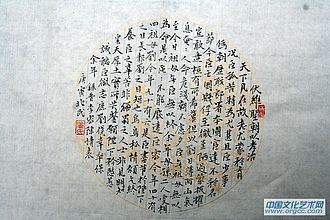 伏惟聖朝以孝治
天下凡在故老猶蒙矜育
況臣孤苦特為尤甚且臣少事
偽朝歷職郎署本圖宦達不矜名
節今臣亡國賤俘至微至陋過蒙拔擢
豈敢盤桓有所希冀但以劉日薄西山氣
息奄奄人命危淺朝不慮夕臣無祖母無以
至今日祖母無臣無以終餘年母孫二人更相
為命是以區區不能廢遠臣密今年四十有四
祖母劉今年九十有六是臣盡節於陛下
之日長報劉之日短也烏鳥私情願乞終
養臣之辛苦非獨蜀之人士所見明知
皇天后土實所共鑒願陛下矜愍愚
誠聽臣微志庶劉僥倖保卒
餘年 錄晉李密陳情表
庚寅
中国文化艺术网
www.orgcc.com